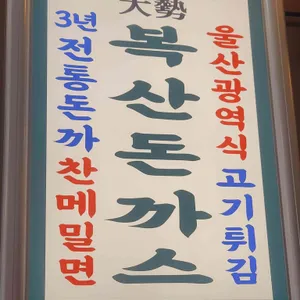 大勢
복산돈까스
울산광역식 고기튀김
3년 전통돈까 찬메밀면